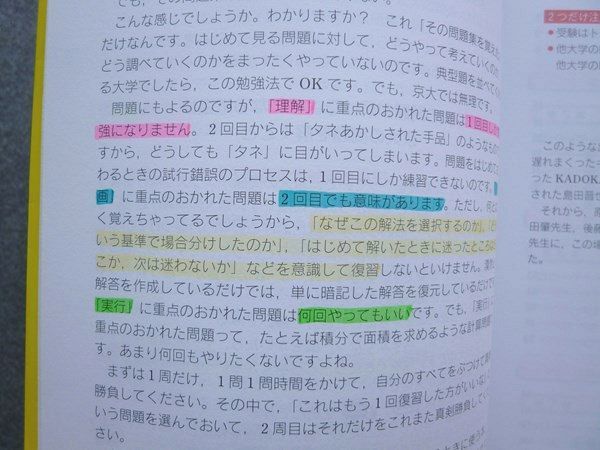 こんな感じでしょうか。わかりますか？ これ「その問題集を覚えた
だけなんです。はじめて見る問題に対して，どうやって考えていくのか
どう調べていくのかをまったくやっていないのです。典型題を並べてく
る大学でしたら，この勉強法でOKです。でも，京大では無理です。
問題にもよるのですが，「理解」に重点のおかれた問題は1回目しか
強になりません。2回目からは「タネあかしされた手品」のようなもの
すから，どうしても「タネ」に目がいってしまいます。問題をはじめて
わるときの試行錯誤のプロセスは，1回目にしか練習できないのです。
画」に重点のおかれた問題は2回目でも意味があります。ただし，何と
く覚えちゃってるでしょうから，「なぜこの解法を選択するのか」，「ど
いう基準で場合分けしたのか」，「はじめて解いたときに迷ったところは
こか，次は迷わないか」などを意識して復習しないといけません。漠
解答を作成しているだけでは，単に暗記した解答を復元しているだけで
「実行」に重点のおかれた問題は何回やってもいいです。でも，「実行」
重点のおかれた問題って，たとえば積分で面積を求めるような計算問題
す。あまり何回もやりたくないですよね。
まずは1周だけ，1問1問時間をかけて，自分のすべてをぶつけて
勝負してください。その中で，「これはもう1回復習した方がいいな
いう問題を選んでおいて，2周目はそれだけをこれまた真剣勝負して
さい。
2つだけ注
● 受験はト
● 他大学の
他大学の
このような
遅れまくった
ったKADOKA
された島田晋也
それから，原
田肇先生，後
先生に，この場